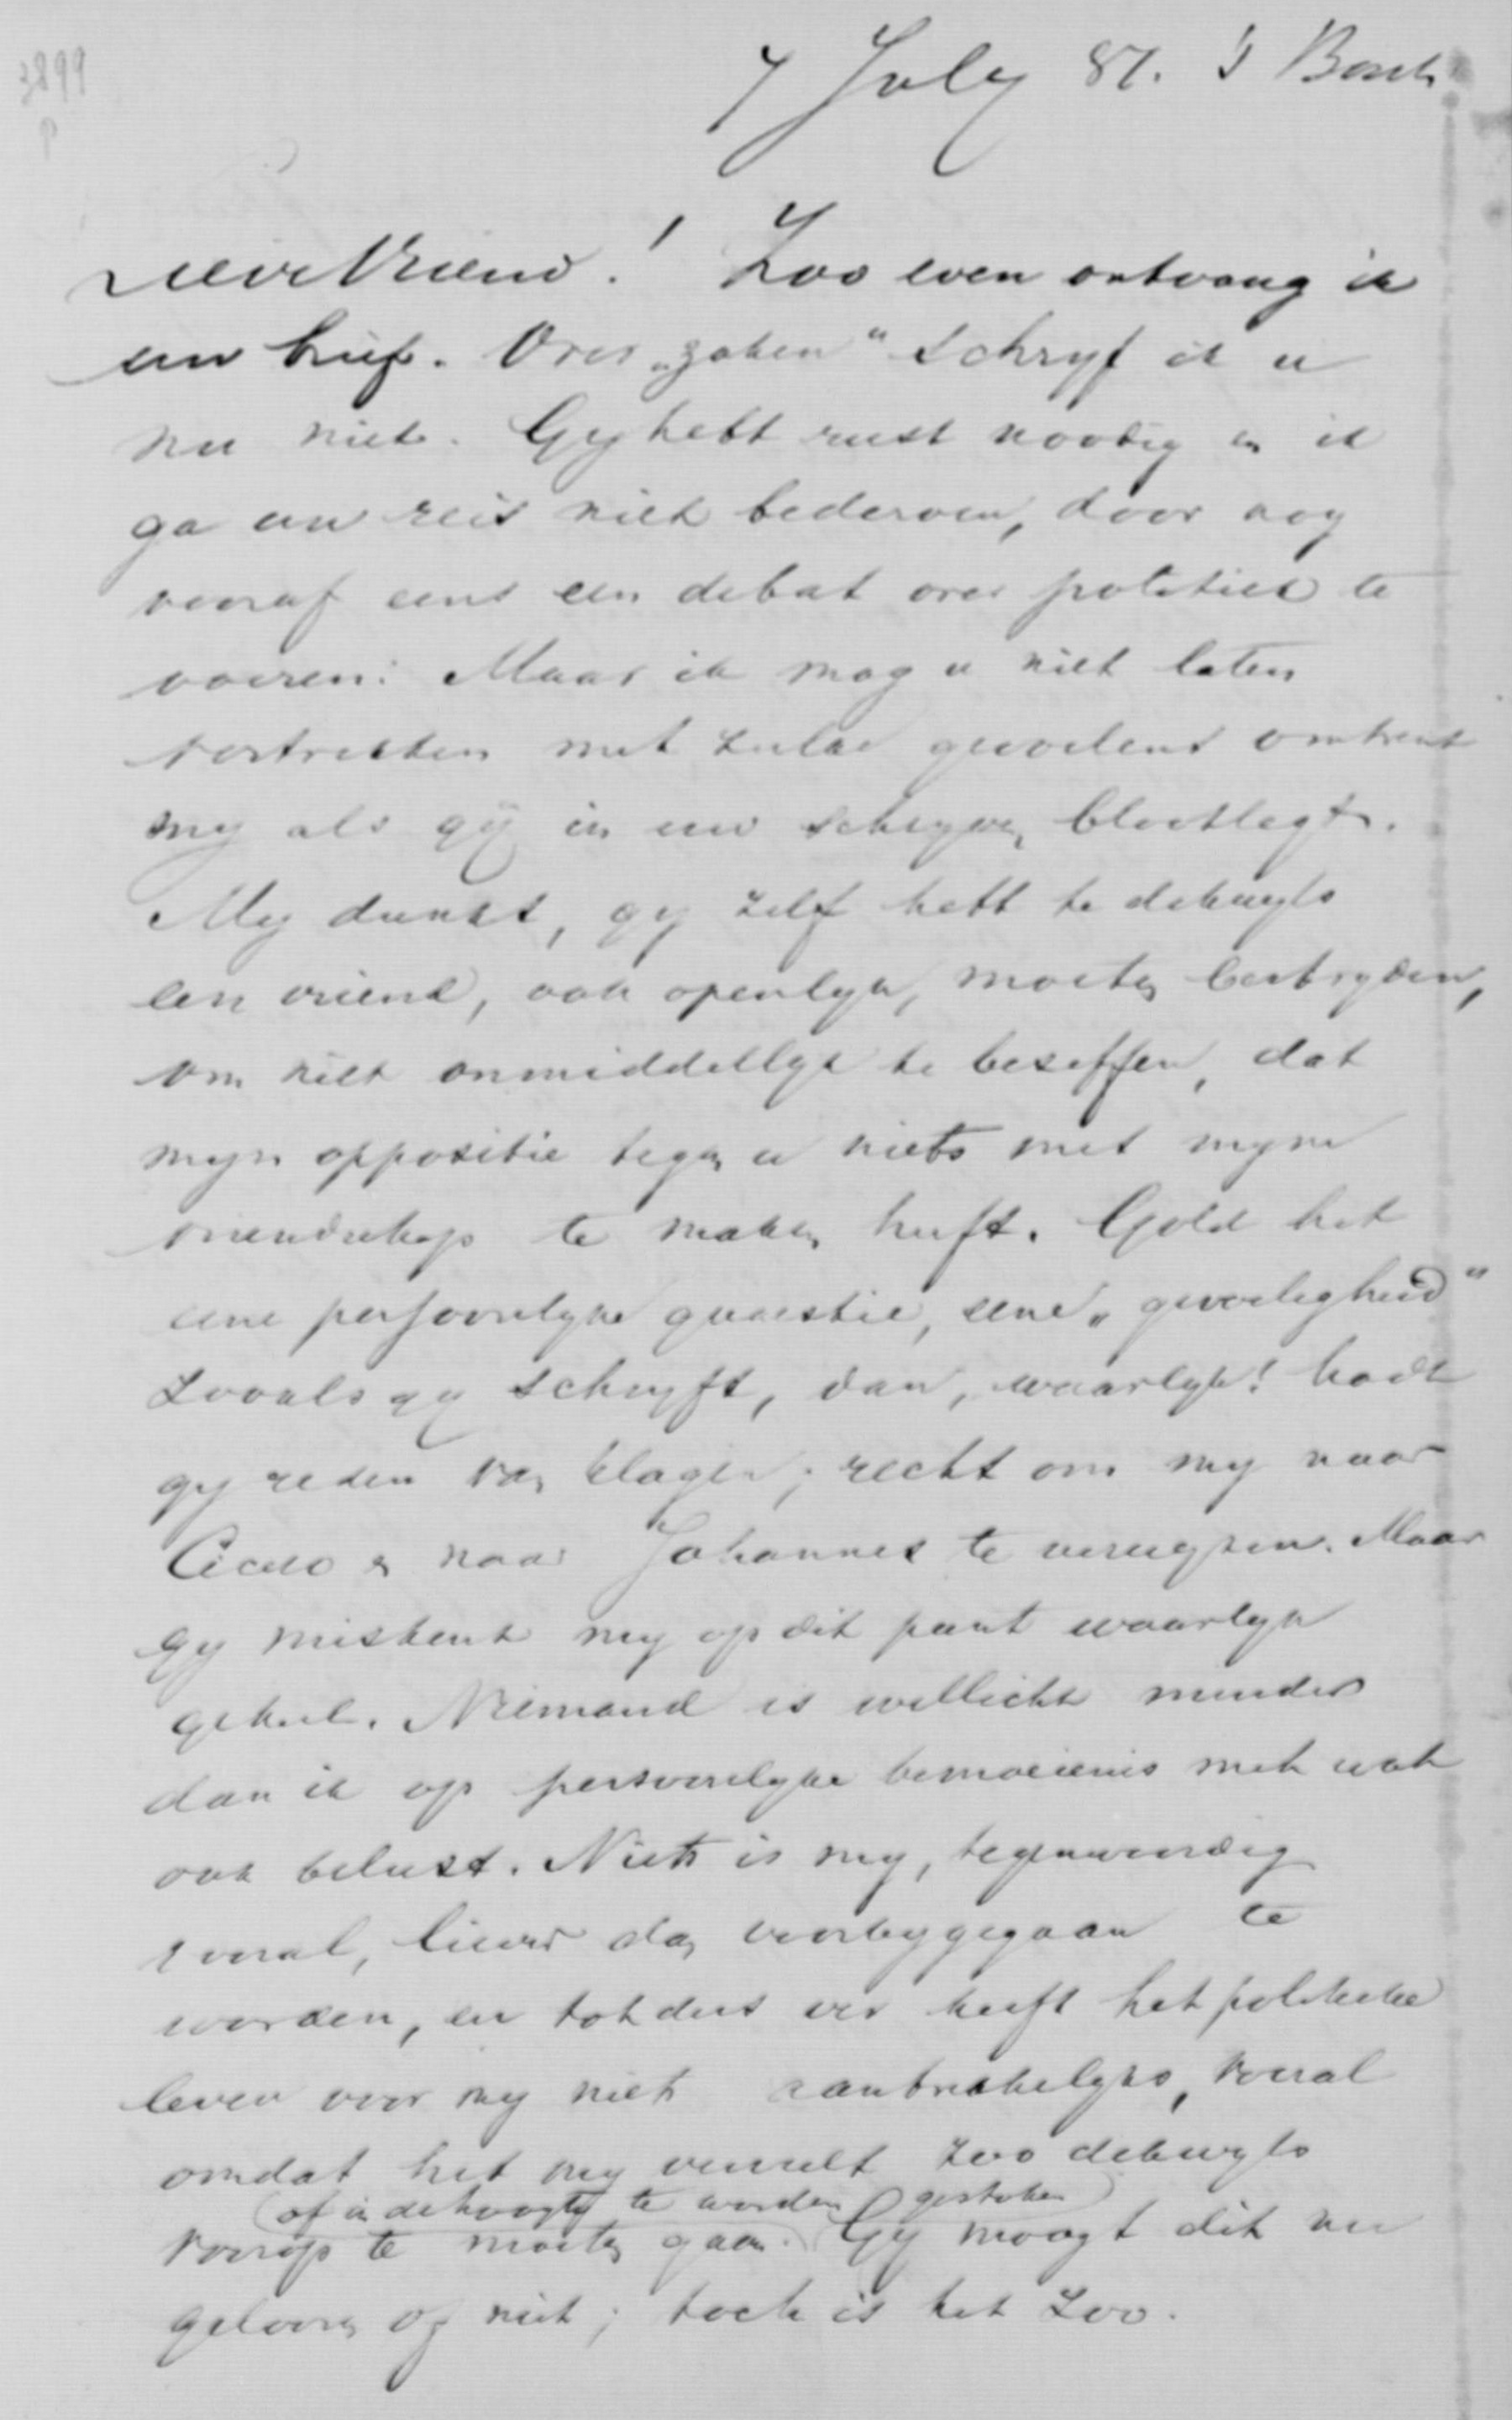 3899
P
7 July 87. 's Bosch
Lieve Vriend! Zoo even ontvang ik
uw brief. Over „zaken" schryf ik u
nu niet. Gy hebt rust noodig en ik
ga uw reis niet bederven, door nog
vooraf eens een debat over politiek te
voeren. Maar ik mag u niet laten
vertrekken met zulke gevoelens omtrent
my als gij in uw schryven blootlegt.
My dunkt, gy zelf hebt te dikwyls
een vriend, ook openlyk, moeten bestryden,
om niet onmiddellyk te beseffen, dat
myn oppositie tegen u niets met myne
vriendschap te maken heeft. Gold het
eene persoonlyke quaestie, eene „gevoeligheid"
zooals gy schryft, dan, waarlyk! hadt
gy reden van klagen; recht om my naar
Cicero en naar Johannes te verwyzen. Maar
gy miskent my op dit punt waarlyk
geheel. Niemand is wellicht minder
dan ik op persoonlyke bemoeienis met wat
ook belust. Niets is my, tegenwoordig
vooral, liever dan voorbygegaan te
worden, en tot dus ver heeft het politieke
leven voor my niets aantrekkelyks, vooral
omdat het my verveelt zoo dikwyls
(of in de hoogte te worden gestoken)
voorop te moeten gaan. Gy moogt dit nu
gelooven of niet; toch is het zoo.